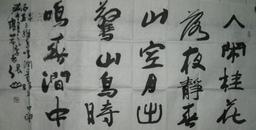 人閒桂花
落夜静春
山空月出
驚山鳥時
鳴春澗中